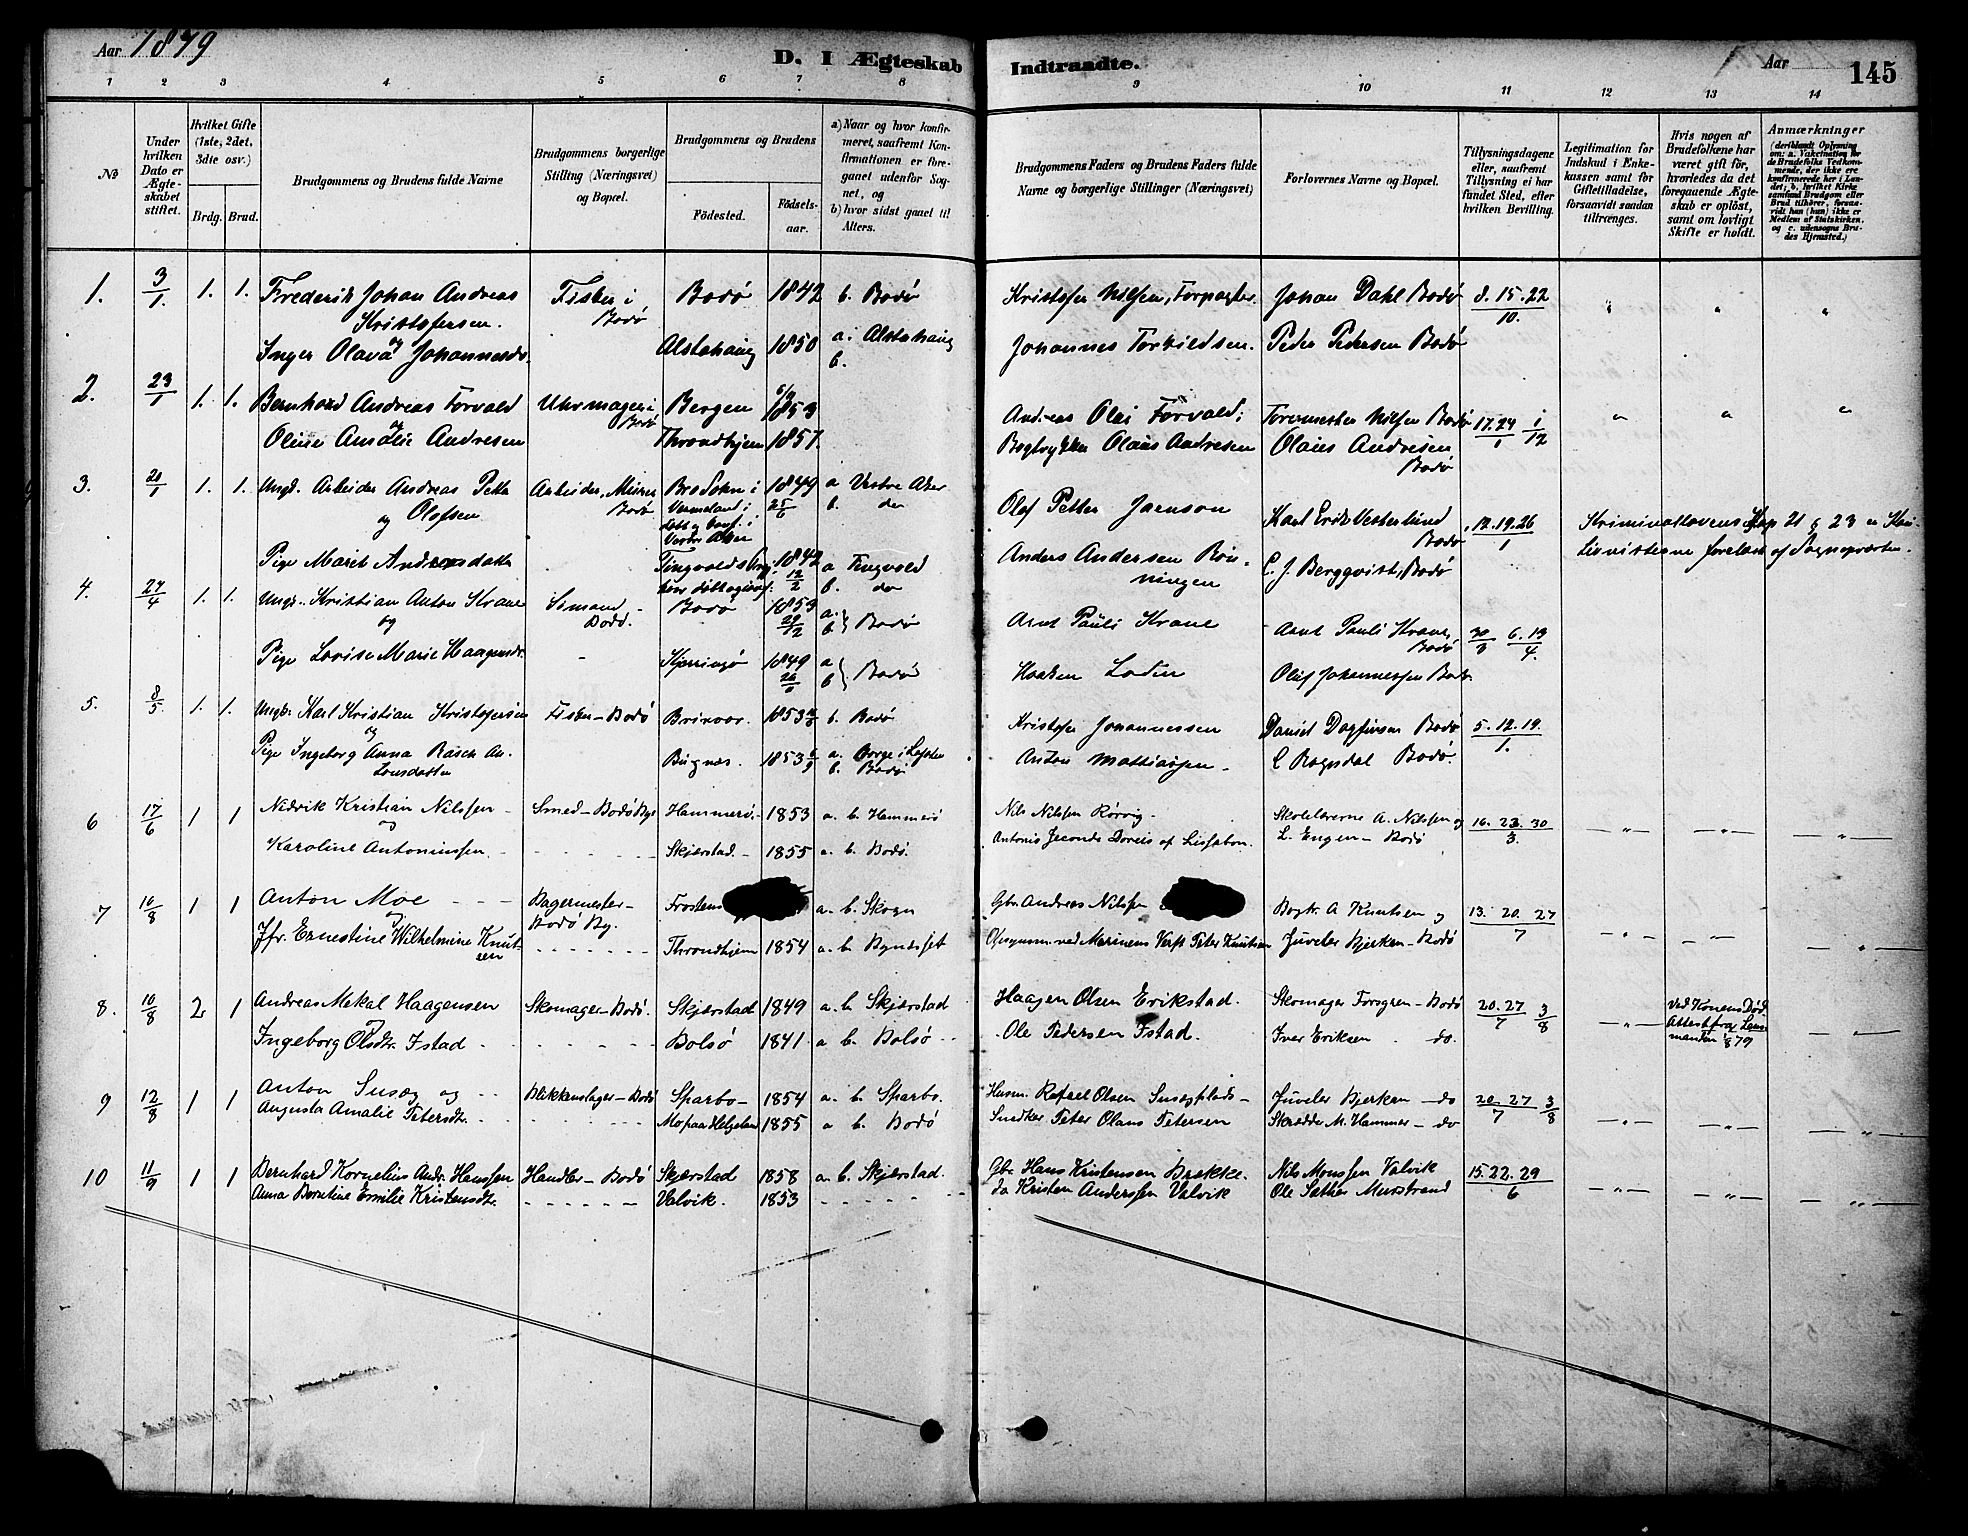 Aar 1879
D. I Ægteskab Indtraadte.
Aar
145
1 2 3 4 5 6 7 8 9 10 11 12 13 14
No
Under hvilken Dato er Ægteskabet stiftet.
Hvilket Gifte (1ste, 2det, 3die osv.)
Brdg. Brud.
Brudgommens og Brudens fulde Navne
Brudgommens borgerlige Stilling (Næringsvei) og Bopæl.
Brudgommens og Brudens
Födested.
Födselsaar.
a) Naar og hvor konfirmeret, saafremt Konfirmationen er foregaaet udenfor Sognet, og
b) hvor sidst gaaet til Alters.
Brudgommens Faders og Brudens Faders fulde Navne og borgerlige Stillinger (Næringsvei)
Forlovernes Navne og Bopæl.
Tillysningsdagene eller, saafremt Tillysning ei har fundet Sted, efter hvilken Bevilling.
Legitimation for Indskud i Enkekassen samt for Giftetilladelse, forsaavidt saadan tiltrænges.
Hvis nogen af Brudefolkene har været gift för, hvorledes da det foregaaende Ægteskab er oplöst, samt om lovligt Skifte er holdt.
Anmærkninger
(deriblandt Oplysning om: a. Vakcination for de Brudefolks Vedkommende, der ikke ere konfirmerede her i Landet; b. hvilket Kirkesamfund Brudgom eller Brud tilhörer, forsaavidt han (hun) ikke er Medlem af Statskirken, og c. udensogns Brudes Hjemsted.)
1. 3/1. 1. 1. Frederik Johan Andreas Kristofersen. Fisker i Bodø Bodø 1842 b. Bodø Kristofer Nilsen, Forpagter. Johan Dahl Bodø 8. 15. 22/10. " " "
og
Inger Olava Johannesdr. Alstahaug 1850 a. Alstahaug b. Johannes Torkildsen. Peder Pedersen Bodø
2. 23/1 1. 1. Bernhard Andreas Forvald Uhrmager i Bodø Bergen 1853 Andreas Olai Forvald; Nilsen Bodø 17.24/1 1/12 " " "
og
Oline Amalie Andresen Throndhjem 1857. Bogtrykker Olaus Andresen Olaus Andresen Bodø
3. 20/1 1. 1. Ungk. Arbeider Andreas Petter Olofsen Arbeider, Bodø i Vermeland i 1849 25/6 a Vestre Aker b. do Olof Petter Jaenson Karl Erik Vesterlund Bodø 12.19.26/1 Kriminallovens Kap 21 § 23
og
Pige Marit Andersdatter 1842 12/2 a Tingvold b. do Anders Andersen Rönningen C. J. Bergqvist, Bodø
4. 24/4 1. 1. Ungk. Kristian Anton Krane Sömand Bodø. Bodø 1853 29/12 a. b. Bodø Arnt Pauli Krane Arnt Pauli Krane, Bodø 30/3 6. 13/4.
og
Pige Lovise Marie Haagensdr. - Kjerringø 1849 a b Bodø Haaken Loden Oluf Johannessen Bodø
5. 8/5 1. 1. Ungk. Karl Kristian Kristofersen Fisker - Bodø 1853 b. Bodø Kristofer Johannessen Daniel Dagfinsen Bodø 5. 12. 19./1.
og
Pige Ingeborg Anna Rasch Antonsdatter Bugnæs. 1853 6/9 a. Borge i Lofoten b. Bodø Anton Mattiassen - Bodø.
6 17/6 1 1 Nedrik Kristian Nilssen - Smed - Bodø By Hammerö. - 1853 a. b. Hammerö Nils Nilssen Rörvig. Skolelærerne A. Nilssen og 16. 23. 30/3. - " - - " - - " -
og
Karoline Antoniussen. - - - - - Skjerstad. - 1855 a. b. Bodö. af Lissabon. L. Engen - Bodø
7 10/8 1 1 Anton Moe - - - Bagermester - Bodö By. a. b. Skogn Gbr. Andreas Nilssen Bogtr. A Knutsen og 13. 20. 27/7 - " - - " - - " -
og
Jfr. Ernestine Wilhelmine Knutsen - - - - - Throndhjem 1854 a. b. Bynesset ved Marinens Verft Peter Knutsen Juveler Bjerken - Bodø
8. 10/8 2 1 Andreas Mekal Haagensen Skomager - Bodö. Skjerstad 1849 a. b. Skjerstad Haagen Olsen Erikstad. Skomager Forsgren - Bodø 20. 27/7 3/8 - " - Ved Konens Död. Attest fra Lensmanden 1/8 79 - " -
Ingeborg P Olsdtr. Istad - - - - - Bolsö 1841 a b. Bolsö - - Ole Pedersen Istad. Iver Eriksen - do.
9 12/8 1 1 Anton Susæg og - - Blikkenslager - Bodö Sparbo - 1854 a. b. Sparbo. Husm. Rafael Olsen Susægplads - Juveler Bjerken - do 20. 27/7 3/8 - " - - " - - " -
Augusta Amalie Petersdtr. - - - - - Mo paa Helgeland 1855 a b. Bodö Snedker Peter Olaus Petersen Skrædder M. Hammer - do
10 11/9 1 1 Bernhard Kornelius Andr. Hanssen Handler - Bodö Skjerstad 1858 a. b. Skjerstad. Gbr. Hans Kristensen Brække. Nils Monssen Valvik 15. 22. 29/6 - " - - " - - " -
Anna Berntine Emilie Kristensdtr. - - - - - Valvik. 1853 - - - - - do Kristen Anderssen Valvik Ole Sather